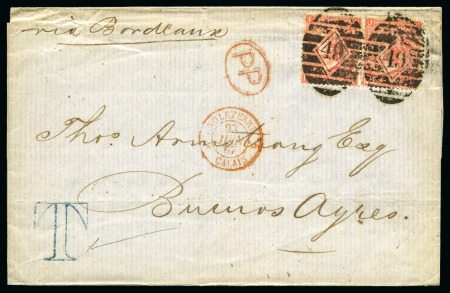 via Bordeaux
PP
49 49
ANGLETERRE
23
CALAIS
Thos Armstrong Esq
Buenos Ayres.
T